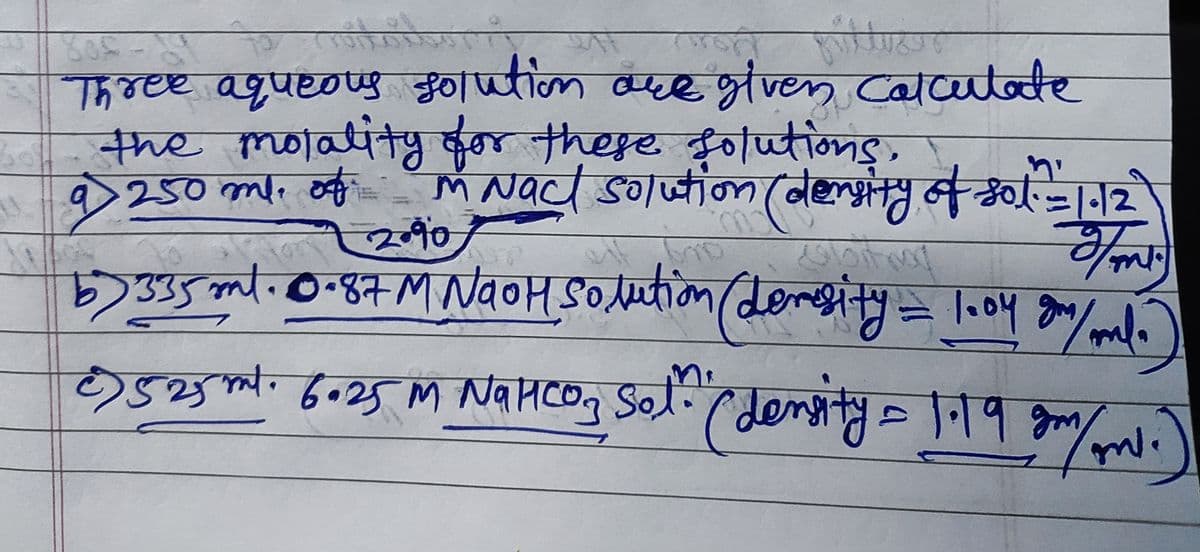 Three aqueous solution are given, Calculate
the molality for these solutions.
a) 250 ml. of M Nacl solution (density of sol.ⁿ· = 1.12 g/ml.)
2.90
b) 335 ml. 0.87 M NaOH solution (density = 1.04 gm/ml.)
c) 525 ml. 6.25 M NaHCO₃ Sol.ⁿ· (density = 1.19 gm/ml.)